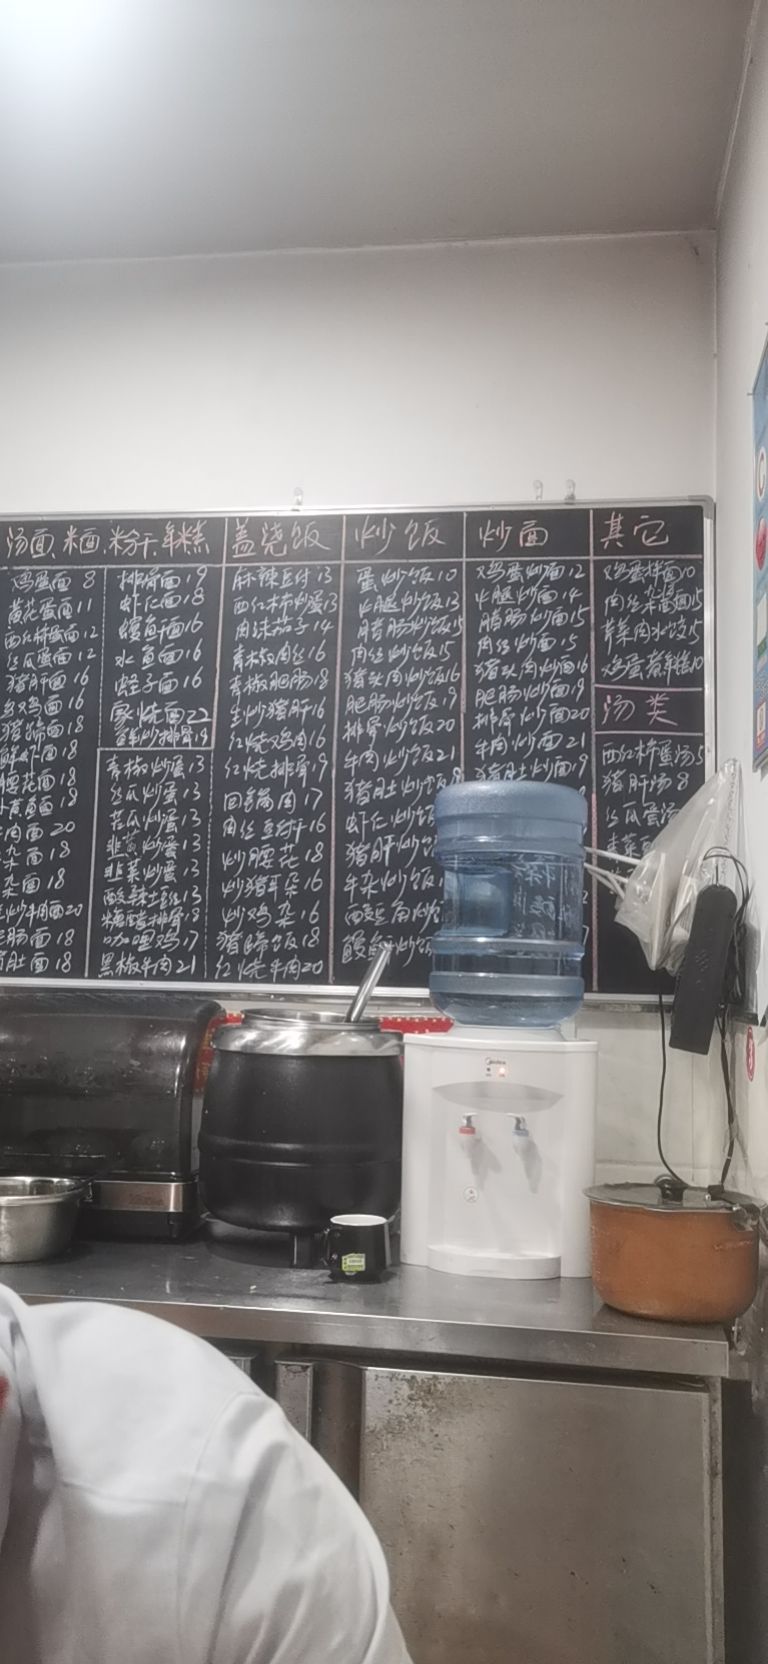 汤面、米面、粉干、年糕
鸡蛋面 8
黄花蛋面 11
西红柿蛋面 12
丝瓜蛋面 12
猪肝面 16
鸡面 16
猪蹄面 18
虾面 18
腰花面 18
面 18
肉面 20
杂面 18
杂面 18
炒牛肉面 20
肠面 18
肚面 18
排骨面 19
虾仁面 18
鳗鲞面 16
水鱼面 16
蛏子面 16
家烧面 22
鲜炒排骨 19
青椒炒蛋 13
丝瓜炒蛋 13
苦瓜炒蛋 13
韭黄炒蛋 13
韭菜炒蛋 13
酸辣土豆丝 13
糖醋排骨 18
咖喱鸡 17
黑椒牛肉 21
盖浇饭
麻辣豆付 13
西红柿炒蛋 13
肉沫茄子 14
青椒肉丝 16
青椒肥肠 18
生炒猪肝 16
红烧鸡肉 16
红烧排骨 19
回锅肉 17
肉丝豆付干 16
炒腰花 18
炒猪耳朵 16
炒鸡杂 16
猪蹄饭 18
红烧牛肉 20
炒饭
蛋炒饭 10
火腿炒饭 13
腊肠炒饭 15
肉丝炒饭 15
猪头肉炒饭 16
肥肠炒饭 19
排骨炒饭 20
牛肉炒饭 21
猪肚炒饭
虾仁炒饭
猪肝炒饭
牛杂炒饭
炒面
鸡蛋炒面 12
火腿炒面 14
腊肠炒面 15
肉丝炒面 15
猪头肉炒面 16
肥肠炒面 19
排骨炒面 20
牛肉炒面 21
猪肚炒面 19
其它
鸡蛋拌面 10
肉丝杂酱面 15
荠菜肉水饺 15
鸡蛋煮年糕 10
汤类
西红柿蛋汤 5
猪肝汤 8
丝瓜蛋汤
Midea